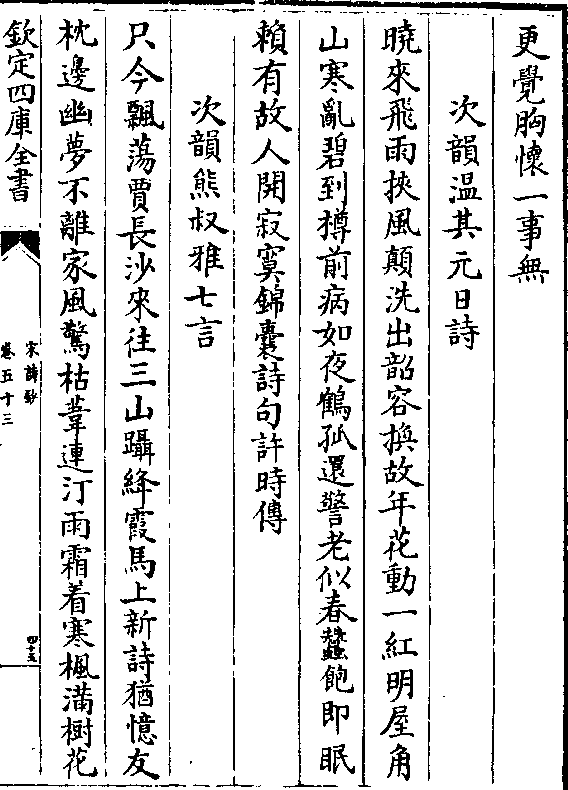 更覺胸懷一事無
次韻温其元日詩
曉來飛雨挾風顛洗出韶容換故年花動一紅明屋角
山寒亂碧到樽前病如夜鶴孤還警老似春蠶飽即眠
賴有故人開寂寞錦囊詩句許時傳
次韻熊叔雅七言
只今飄蕩賈長沙來往三山躡絳霞馬上新詩猶憶友
枕邊幽夢不離家風驚枯葦連汀雨霜着寒楓滿樹花
欽定四庫全書
宋詩鈔
卷五十三
四十五